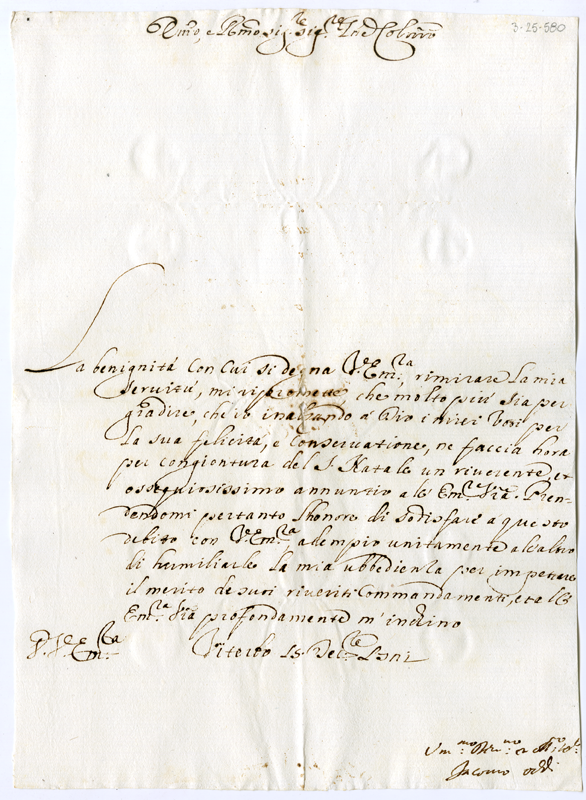 3-25-580
La benignità con cui si degna V.ra Em.za rimirare la mia
servitù, mi ripromette che molto più sia per
gradire, che io inalzando a Dio i miei voti per
la sua felicità, e conservatione, ne faccia hora
per congiontura del S. Natale un riverente, et
ossequiosissimo annuntio all' Em.za Sua. Pren-
dendomi pertanto l'honore di sodisfare a questo
debito con V.ra Em.za adempio unitamente all'altro
di humiliarle la mia ubbedienza per impetrare
il merito de suoi riveriti Commandamenti, et all'
Em.za Sua profondamente m'inchino
Viterbo 15 Dec.
Jacomo